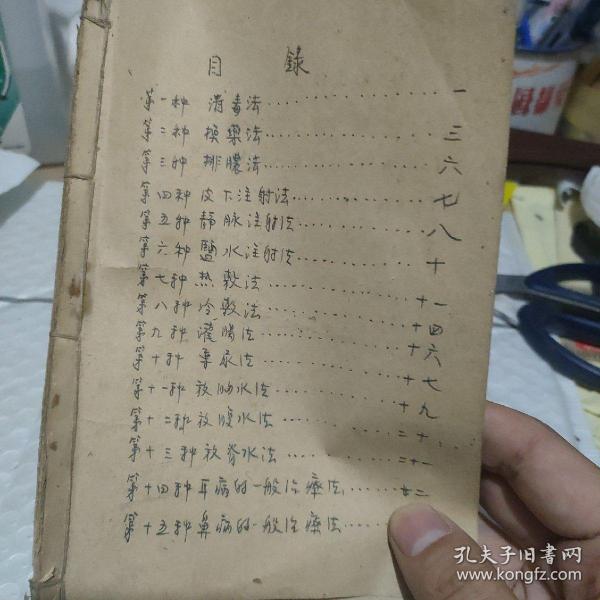 目 錄
第一种 消毒法 一
第二种 换藥法 三
第三种 排膿法 六
第四种 皮下注射法 七
第五种 靜脉注射法 八
第六种 鹽水注射法 十
第七种 热敷法 十一
第八种 冷敷法 十四
第九种 灌腸法 十六
第十种 導尿法 十七
第十一种 放胸水法 十九
第十二种 放腹水法 二十
第十三种 放脊水法 二十一
第十四种 耳病的一般治療法 廿二
第十五种 鼻病的一般治療法
孔夫子旧書网
www.kongfz.com